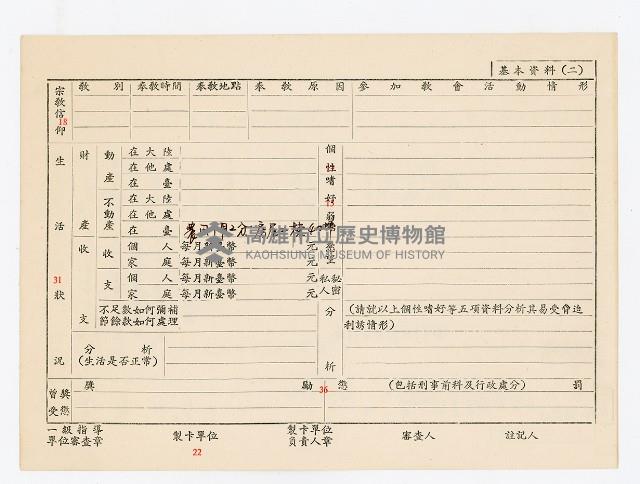 基本資料(二)
宗教信仰
教別 奉教時間 奉教地點 奉教原因 參加教會活動情形
18
生活狀況
財產
動產
在大陸
在他處
在臺
不動產
在大陸
在他處
在臺
個性嗜好
15
高雄市立歷史博物館
KAOHSIUNG MUSEUM OF HISTORY
收支
收
個人 每月新臺幣 元
家庭 每月新臺幣 元
支
個人 每月新臺幣 元
家庭 每月新臺幣 元
私人秘密
31
不足數如何彌補
節餘款如何處理
分析
(請就以上個性嗜好等五項資料分析其易受脅迫
利誘情形)
分析
(生活是否正常)
曾獎受懲
獎勵
36
懲 (包括刑事前科及行政處分) 罰
一級指導
單位審查章
製卡單位
22
製卡單位
負責人章
審查人
註記人